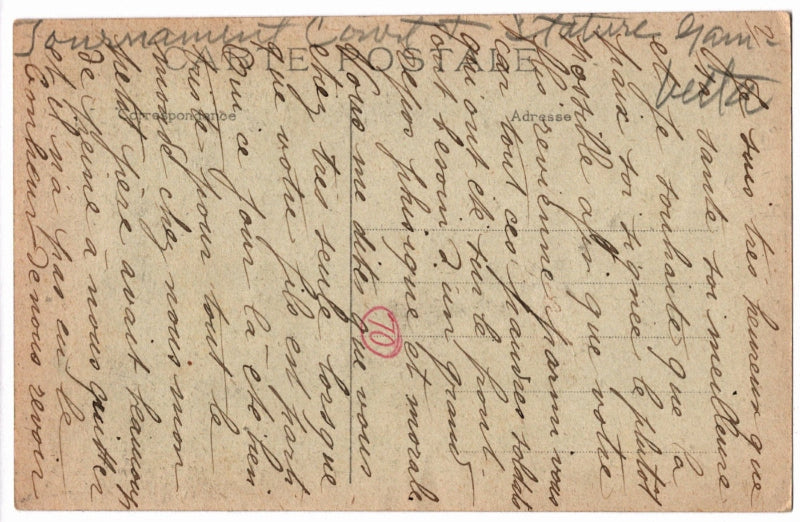 Tournament Court & Stature Gam-
betta
CARTE POSTALE
Correspondance
Adresse
2
suis très heureux que
santé soi meilleure
et je souhaite que la
paix soi signée le plutot
possible afin que votre
fils revienne parmi vous
car tout ces pauvres soldats
qui ont été sur le front
ont besoin d'un grand
repos phisique et morale.
Vous me dites que vous
etiez très seule lorsque
que votre fils est parti
Oui ce jour là a été bien
triste pour tout le
monde chez nous mon
petit père avait beaucoup
de peine à nous quitter
et il n'a pas eu le
bonheur de nous revoir
70